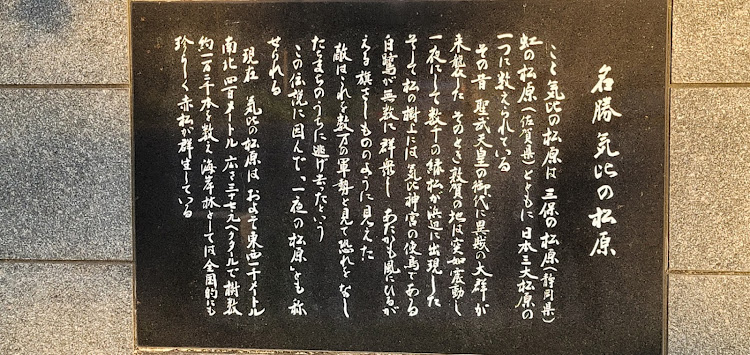 名勝 気比の松原
ここ気比の松原は 三保の松原(静岡県)
虹の松原(佐賀県)とともに 日本三大松原の
一つに数えられている
その昔 聖武天皇の御代に異賊の大群が
来襲した そのとき敦賀の地は突如震動し
一夜にして数千の緑松が浜辺に出現した
そして松の樹上には 気比神宮の使鳥である
白鷺が無数に群衆し あたかも風にひるが
える旗さしもののように見えた
敵はこれを数万の軍勢と見て恐れをなし
たちまちのうちに逃げ去ったという
この伝説に因んで、"一夜の松原"とも称
せられる
現在 気比の松原は およそ東西一千メートル
南北 四百メートル 広さ三十七元ヘクタールで樹数
約一万三千本を数え 海岸林としては 全国的にも
珍らしく 赤松が群生している